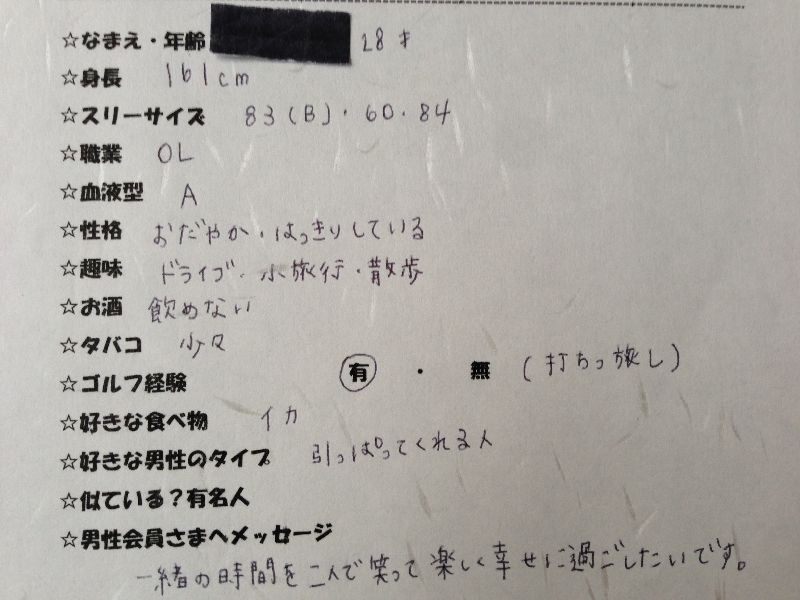 ☆なまえ・年齢 28才
☆身長 161cm
☆スリーサイズ 83(B)・60・84
☆職業 OL
☆血液型 A
☆性格 おだやか・はっきりしている
☆趣味 ドライブ・小旅行・散歩
☆お酒 飲めない
☆タバコ 少々
☆ゴルフ経験 有・無 (打ちっ旅し)
☆好きな食べ物 イカ
☆好きな男性のタイプ 引っぱってくれる人
☆似ている?有名人
☆男性会員さまへメッセージ
一緒の時間を二人で笑って楽しく幸せに過ごしたいです。